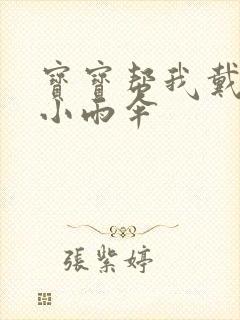 寶寶帮我戴
小雨伞
張紫婷